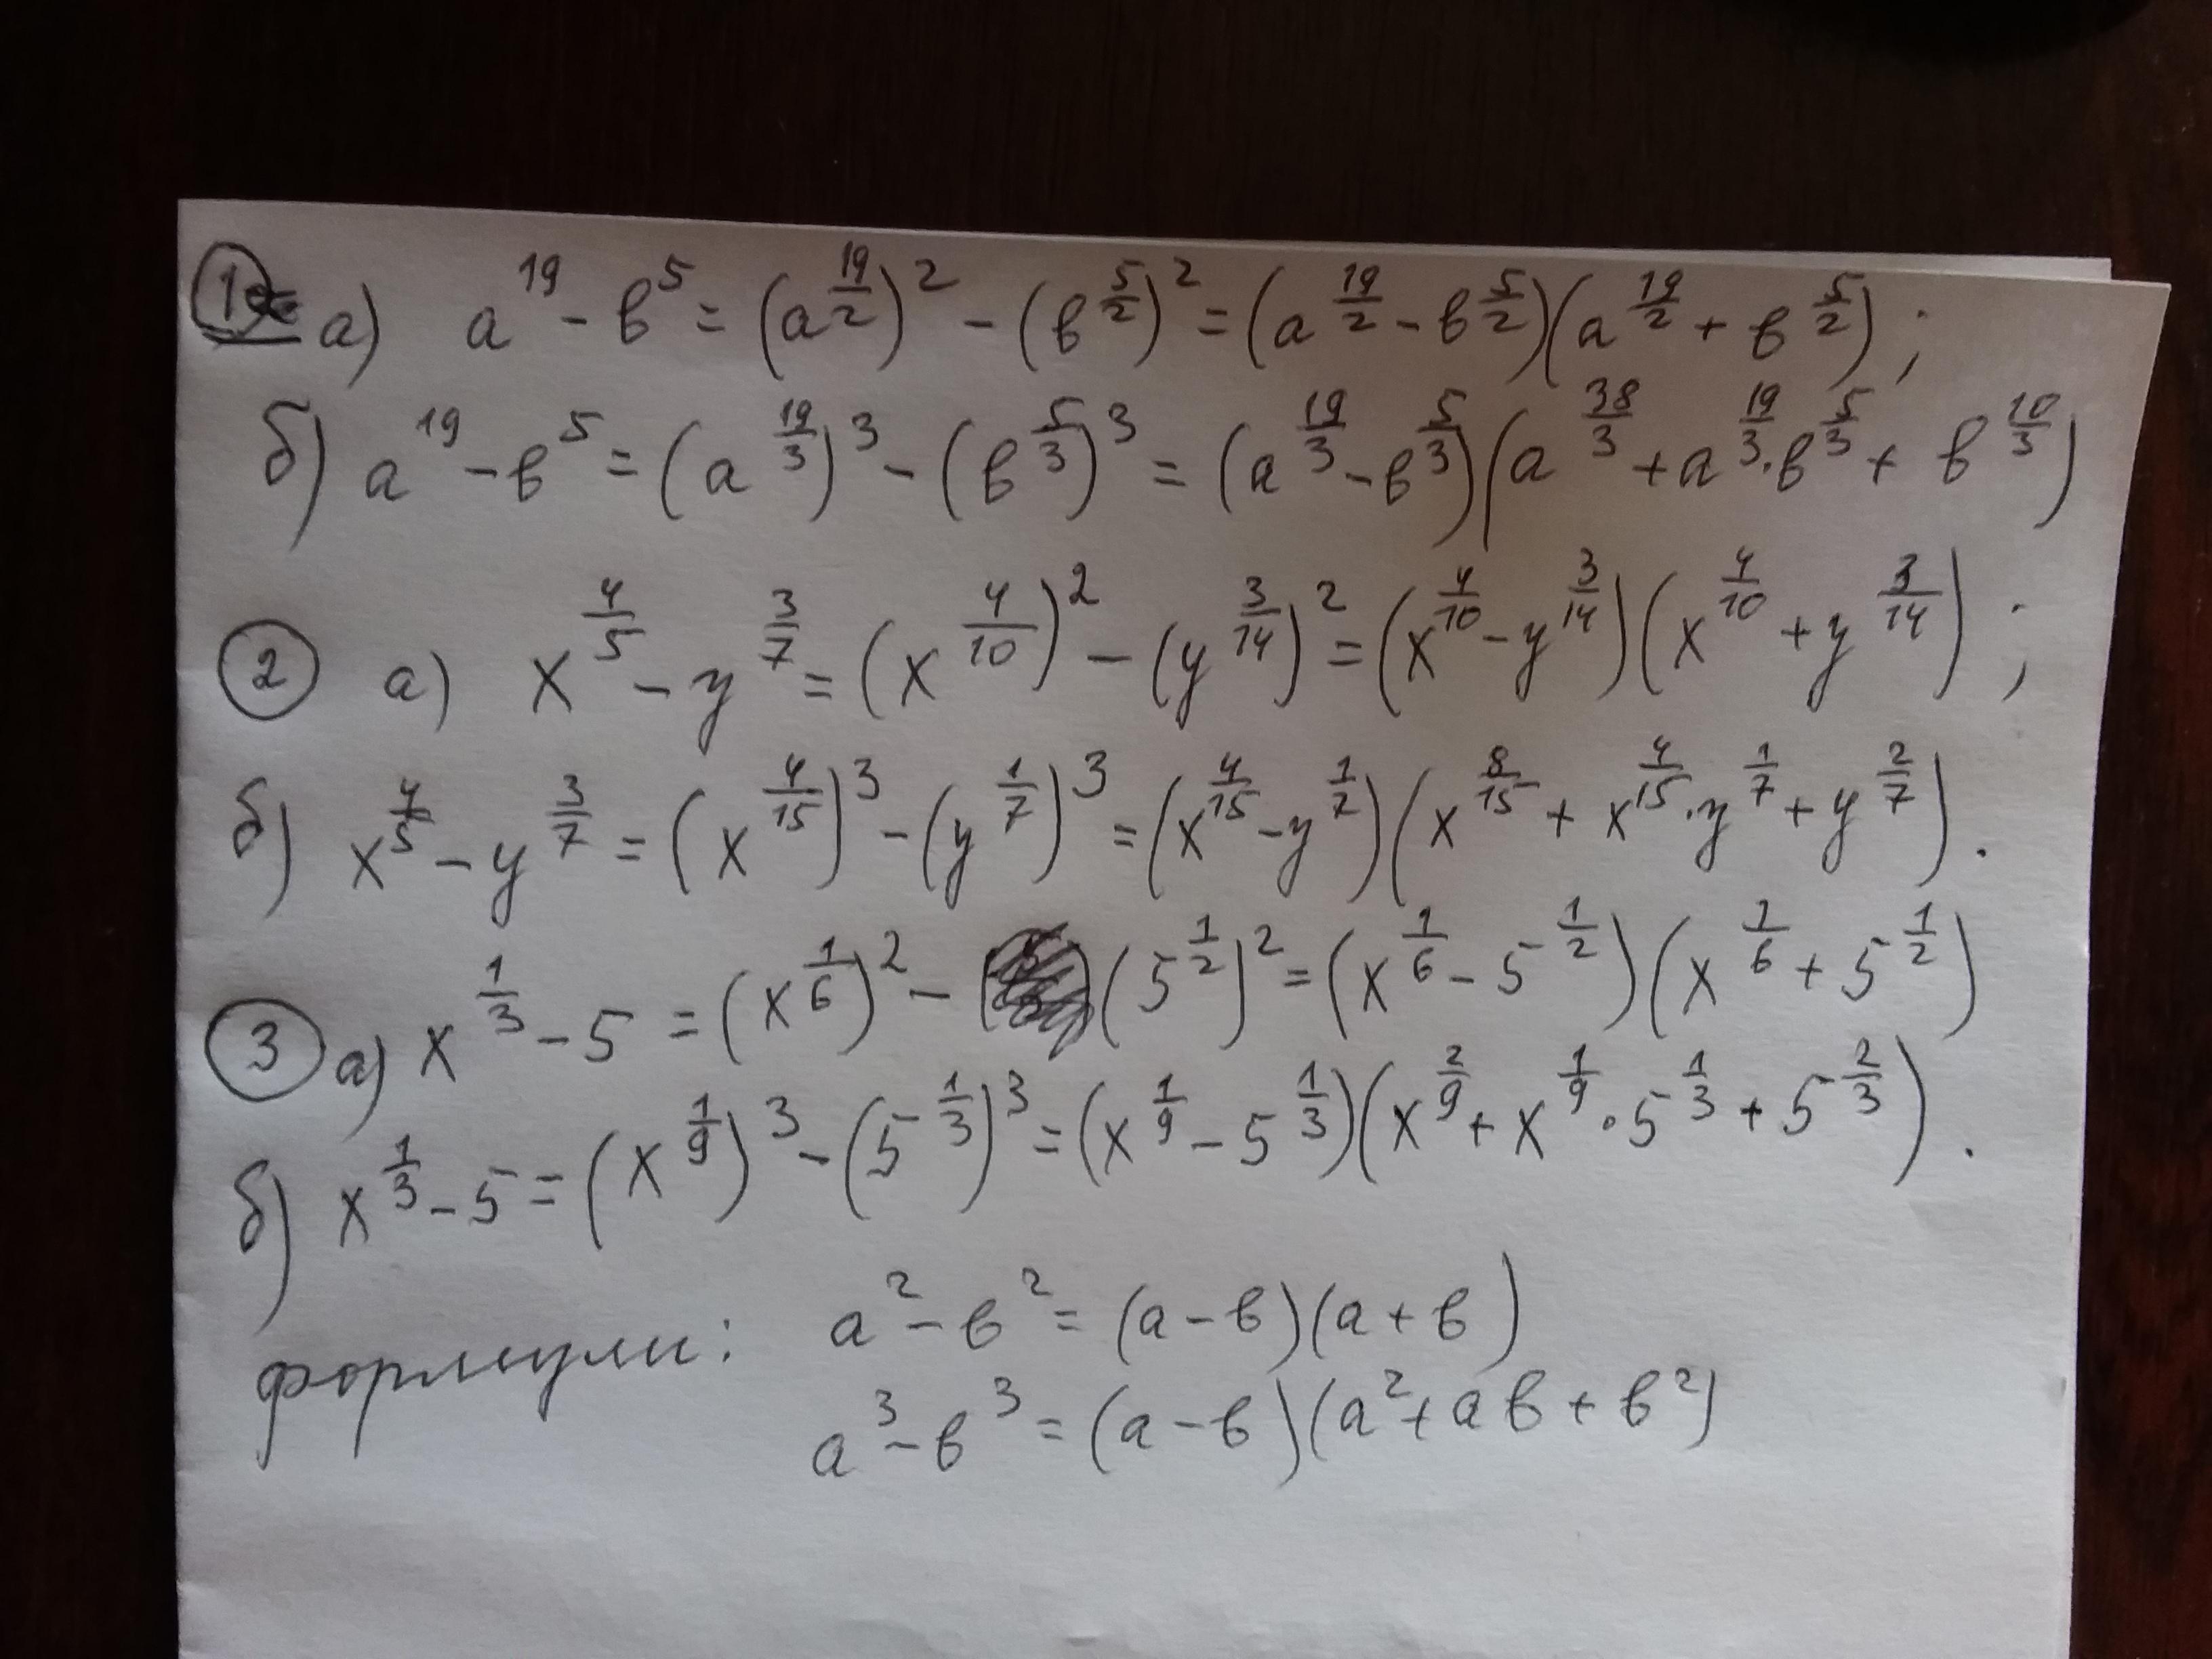 ① а) a^19 - b^5 = (a^(19/2))^2 - (b^(5/2))^2 = (a^(19/2) - b^(5/2))(a^(19/2) + b^(5/2));
б) a^19 - b^5 = (a^(19/3))^3 - (b^(5/3))^3 = (a^(19/3) - b^(5/3))(a^(38/3) + a^(19/3)·b^(5/3) + b^(10/3))
② а) x^(4/5) - y^(3/7) = (x^(4/10))^2 - (y^(3/14))^2 = (x^(4/10) - y^(3/14))(x^(4/10) + y^(3/14));
б) x^(4/5) - y^(3/7) = (x^(4/15))^3 - (y^(1/7))^3 = (x^(4/15) - y^(1/7))(x^(8/15) + x^(4/15)·y^(1/7) + y^(2/7)).
③ а) x^(1/3) - 5 = (x^(1/6))^2 - (5^(1/2))^2 = (x^(1/6) - 5^(1/2))(x^(1/6) + 5^(1/2))
б) x^(1/3) - 5 = (x^(1/9))^3 - (5^(1/3))^3 = (x^(1/9) - 5^(1/3))(x^(2/9) + x^(1/9)·5^(1/3) + 5^(2/3)).
формули: a^2 - b^2 = (a - b)(a + b)
a^3 - b^3 = (a - b)(a^2 + ab + b^2)